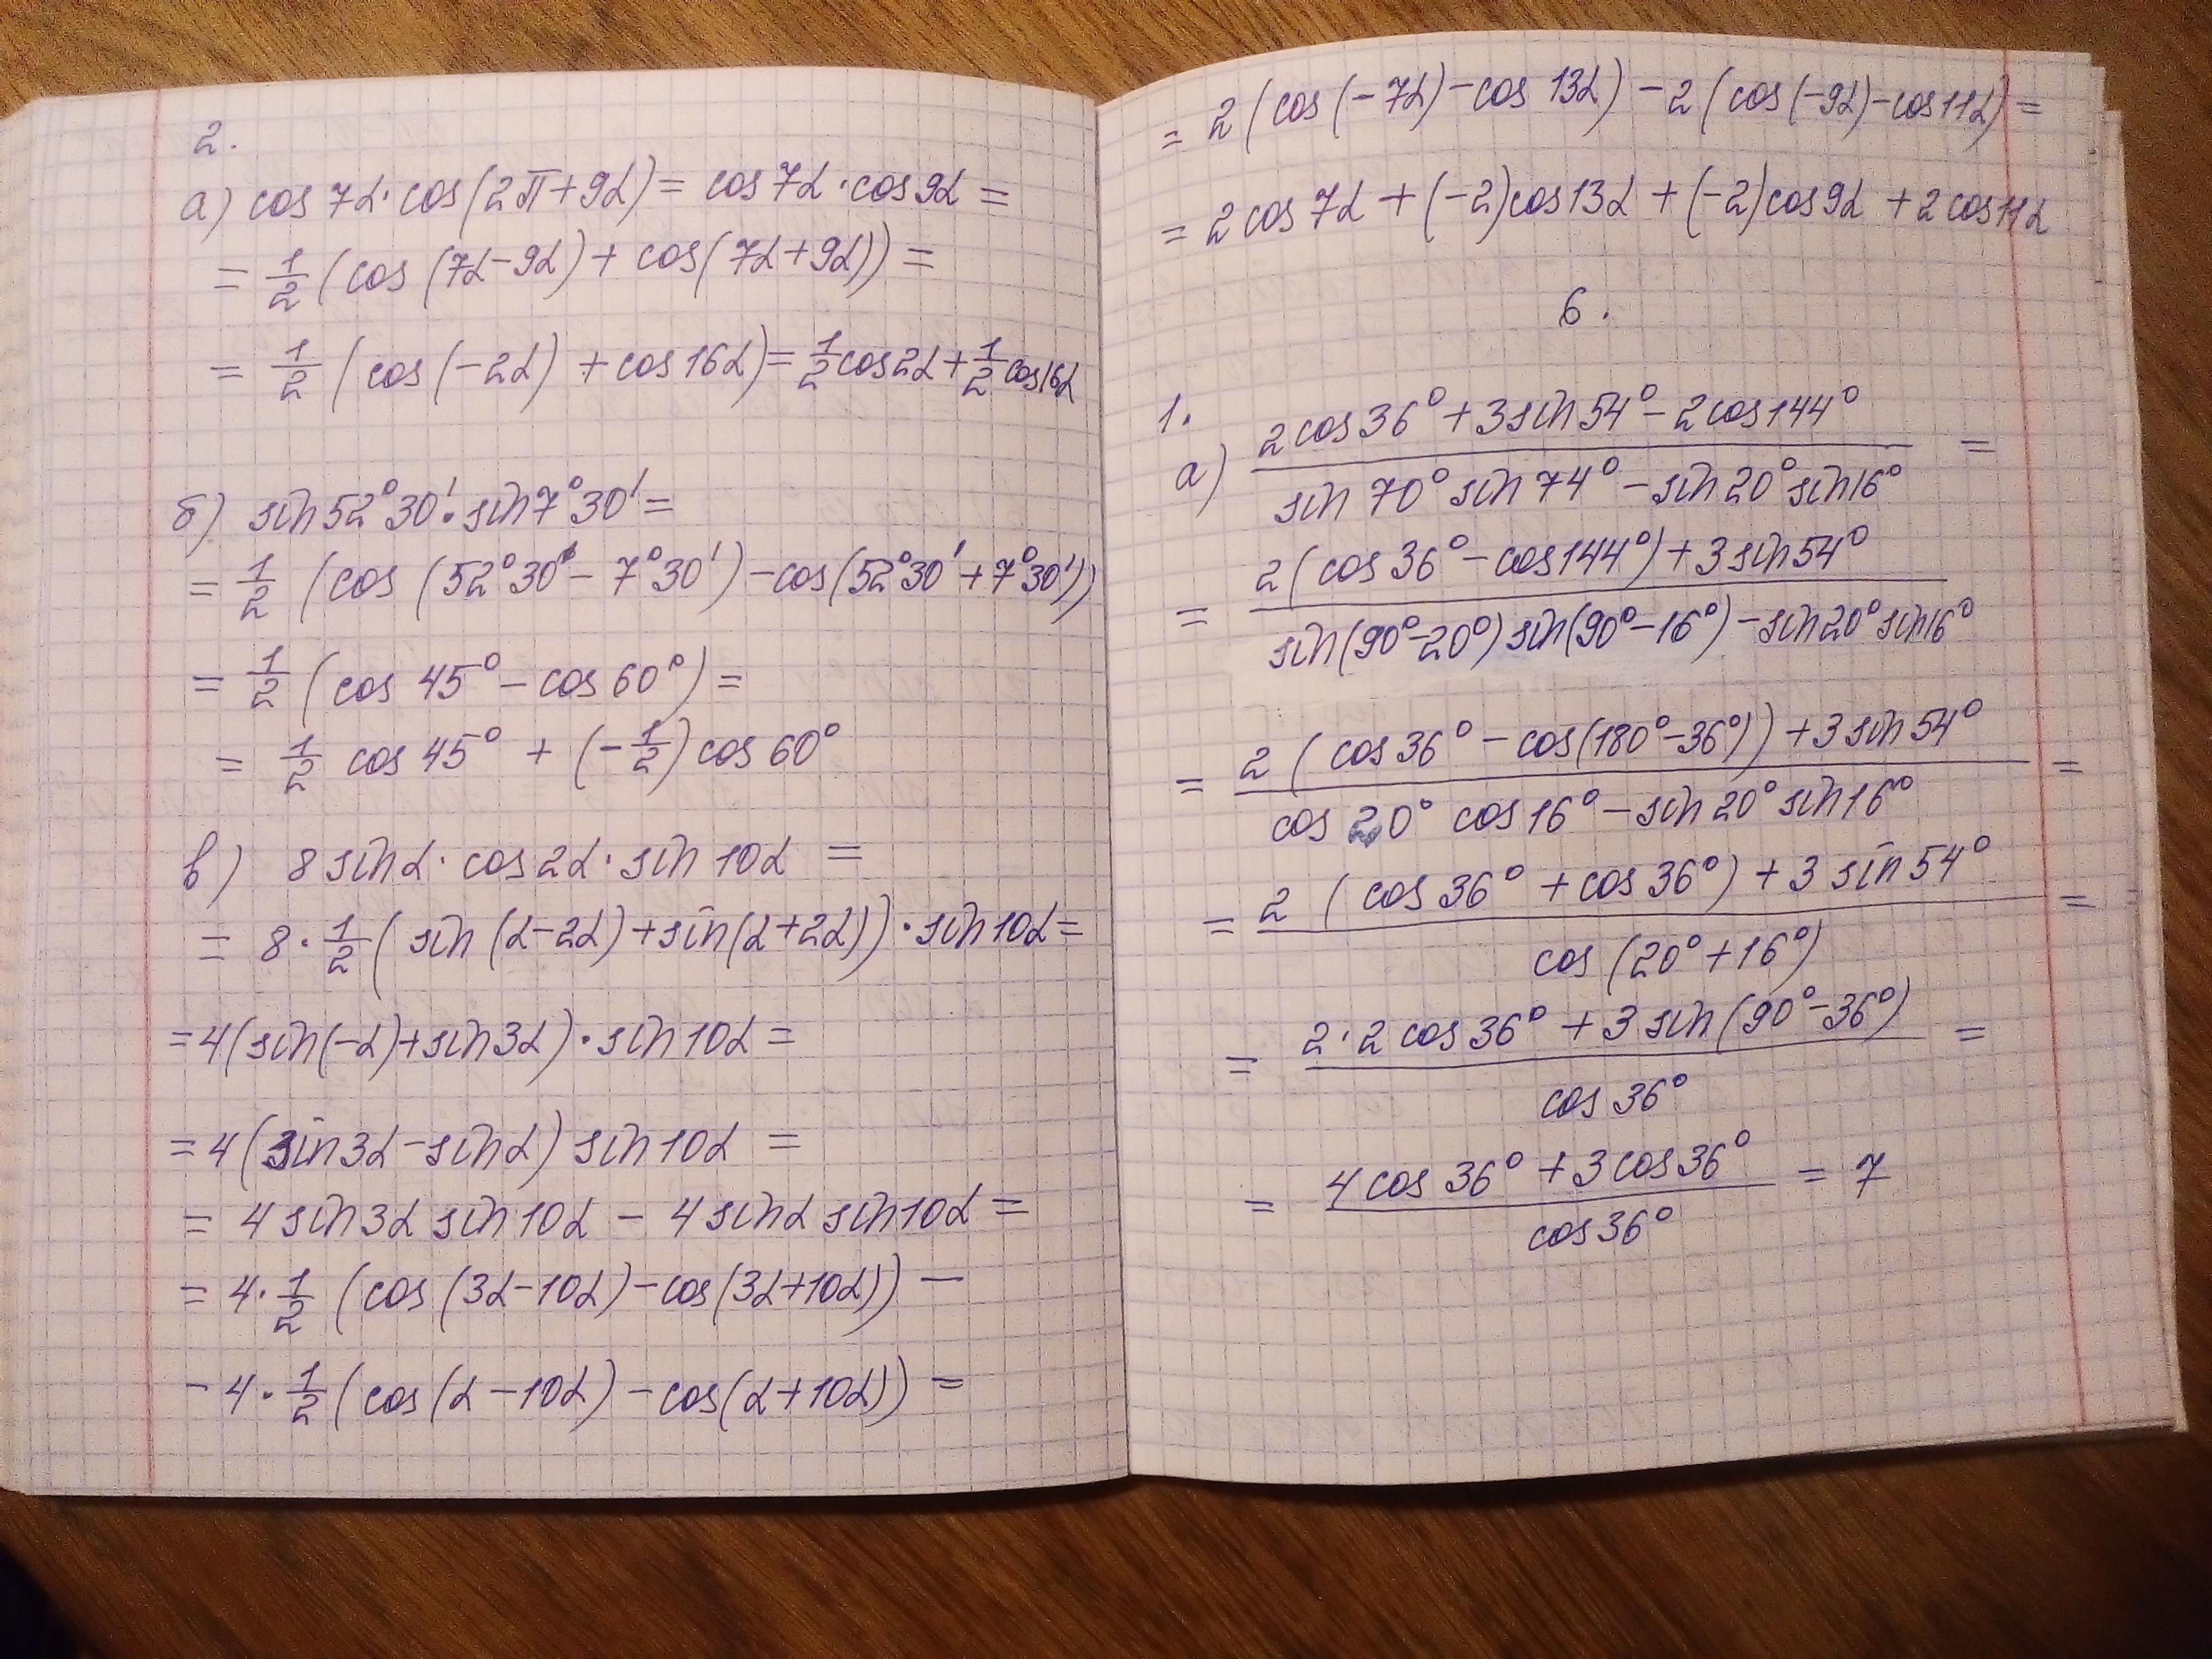 2.
а) cos 7α · cos(2π + 9α) = cos 7α · cos 9α =
= 1/2 (cos (7α - 9α) + cos(7α + 9α)) =
= 1/2 (cos (-2α) + cos 16α) = 1/2 cos 2α + 1/2 cos 16α
б) sin 52°30' · sin 7°30' =
= 1/2 (cos (52°30' - 7°30') - cos(52°30' + 7°30'))
= 1/2 (cos 45° - cos 60°) =
= 1/2 cos 45° + (-1/2) cos 60°
в) 8 sin α · cos 2α · sin 10α =
= 8 · 1/2 (sin (α - 2α) + sin(α + 2α)) · sin 10α =
= 4(sin(-α) + sin 3α) · sin 10α =
= 4(sin 3α - sin α) sin 10α =
= 4 sin 3α sin 10α - 4 sin α sin 10α =
= 4 · 1/2 (cos (3α - 10α) - cos(3α + 10α)) -
- 4 · 1/2 (cos(α - 10α) - cos(α + 10α)) =
= 2 (cos (-7α) - cos 13α) - 2 (cos(-9α) - cos 11α) =
= 2 cos 7α + (-2) cos 13α + (-2) cos 9α + 2 cos 11α
6.
1.
а) (2 cos 36° + 3 sin 54° - 2 cos 144°) / (sin 70° sin 74° - sin 20° sin 16°) =
= (2 (cos 36° - cos 144°) + 3 sin 54°) / (sin(90° - 20°) sin(90° - 16°) - sin 20° sin 16°)
= (2 (cos 36° - cos(180° - 36°)) + 3 sin 54°) / (cos 20° cos 16° - sin 20° sin 16°) =
= (2 (cos 36° + cos 36°) + 3 sin 54°) / (cos (20° + 16°)) =
= (2 · 2 cos 36° + 3 sin (90° - 36°)) / (cos 36°) =
= (4 cos 36° + 3 cos 36°) / (cos 36°) = 7